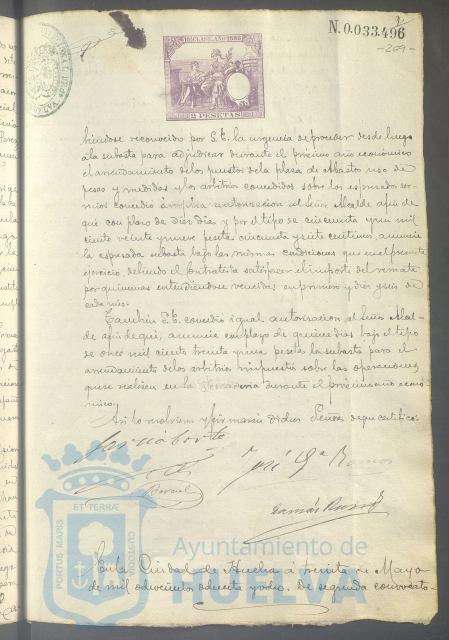 N.0.033.496
-209-
10ª CLASE. AÑO 1888
2 PESETAS
biéndose reconocido por S.E. la urgencia de proveer desde luego
á la subasta para adjudicar durante el próximo año económico
el arrendamiento de los puestos de la plaza de Abastos uso de
pesas y medidas y los arbitrios concedidos sobre los espresados ser-
vicios concedió amplia autorizacion al Señor Alcalde á fin de
que con plazo de diez dias y por el tipo de cincuenta y un mil
ciento veinte y nueve pesetas cincuenta y siete centimos anuncie
la espresada subasta bajo las mismas condiciones que en el presente
ejercicio debiendo el contratista satisfacer el importe del remate
por quincenas entendiendose vencidas en primero y diez y seis de
cada mes.
Tambien S.E. concedió igual autorizacion al Señor Alcal-
de á fin de que, anuncie en plazo de quince dias bajo el tipo
de once mil ciento treinta y una pesetas la subasta para el
arrendamiento de los arbitrios impuestos sobre las operaciones
que se realicen en la Pescaderia durante el próximo año econó-
mico.
Asi lo resolvieron y firmarán dichos Señores de que certifico.
José Gª Ramos
Tomás
ET TERRÆ
PORTUS MARIS
CUSTODIA
Ayuntamiento de
HUELVA
En la Ciudad de Huelva á treinta de Mayo
de mil ochocientos ochenta y ocho. De segunda convocato-